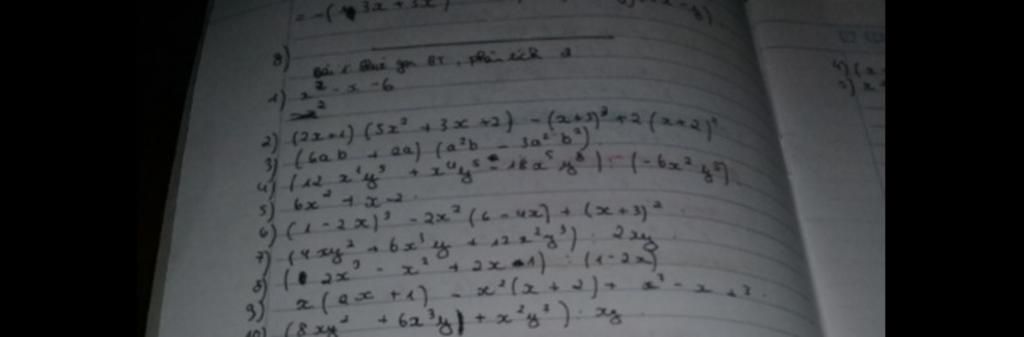 = -(
8)
Bài 1: Rút gọn BT, phân tích
1) x² - x - 6
2) (2x+1)(5x² + 3x + 2) - (x+3)² + 2(x+2)²
3) (6ab + 2a)(a²b - 3a²b²)
4) (12x⁴y⁵ + x⁴y⁵ - 18x⁵y⁸) : (-6x²y⁵)
5) 6x² + x - 2
6) (1 - 2x)³ - 2x²(6 - 4x) + (x+3)²
7) (4xy² + 6x³y + 12x²y³) : 2xy
8) (2x³ - x² + 2x - 1) : (1 - 2x)
9) x(2x + 1) - x²(x + 2) + x³ - x + 3
10) (8xy² + 6x³y + x²y³) : xy